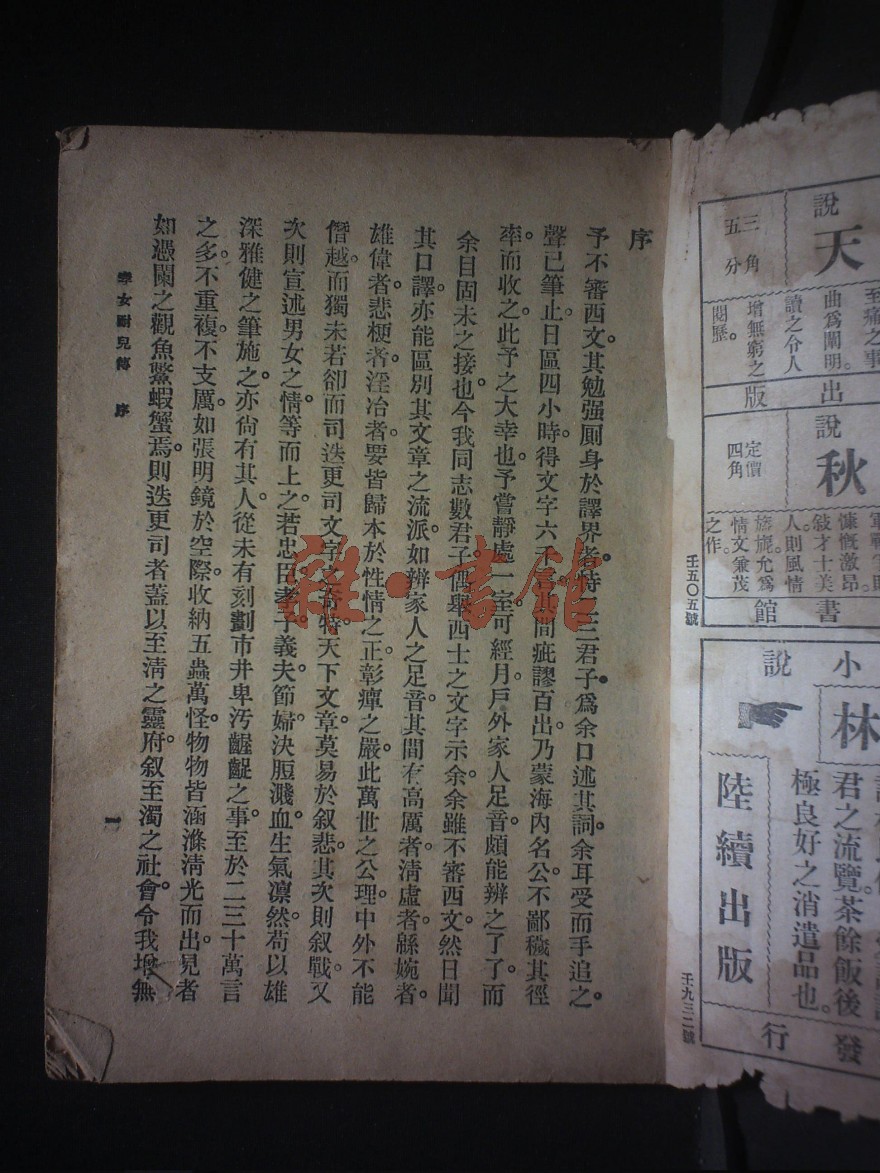 序
予不審西文。其勉强厠身於譯界者。恃二三君子。爲余口述其詞。余耳受而手追之。
聲已筆止。日區四小時。得文字六千言。其間疵謬百出。乃蒙海內名公。不鄙穢其徑
率而收之。此予之大幸也。予嘗靜處一室。可經月。戶外家人足音。頗能辨之了了。而
余目固未之接也。今我同志數君子。偶舉西士之文字示余。余雖不審西文。然日聞
其口譯。亦能區別其文章之流派。如辨家人之足音。其間有高厲者。清虛者。緜婉者。
雄偉者。悲梗者。淫冶者。要皆歸本於性情之正。彰癉之嚴。此萬世之公理。中外不能
僭越。而獨未若卻而司迭更司文字之奇特。天下文章。莫易於叙悲。其次則叙戰。又
次則宣述男女之情。等而上之。若忠臣孝子義夫節婦。決脰濺血。生氣凛然。苟以雄
深雅健之筆施之。亦尙有其人。從未有刻劃市井卑汚齷齪之事。至於二三十萬言
之多。不重複。不支厲。如張明鏡於空際。收納五蟲萬怪。物物皆涵滌清光而出。見者
如憑闌之觀魚鼈蝦蟹焉。則迭更司者。蓋以至淸之靈府。叙至濁之社會。令我增無
孝女耐兒傳 序
一
雜·書館
說
天
三角
五分
至痛之事
曲爲闡明。
讀之令人
增無窮之
閱歷。
出
版
說
秋
定價
四角
慷慨激昂。
敍才士美
人。則風情
旖旎。允爲
情文兼茂
之作。
書
館
壬五〇五號
小
說
林
君之流覽。茶餘飯後
極良好之消遣品也。
陸續出版
發
行
壬九三二號